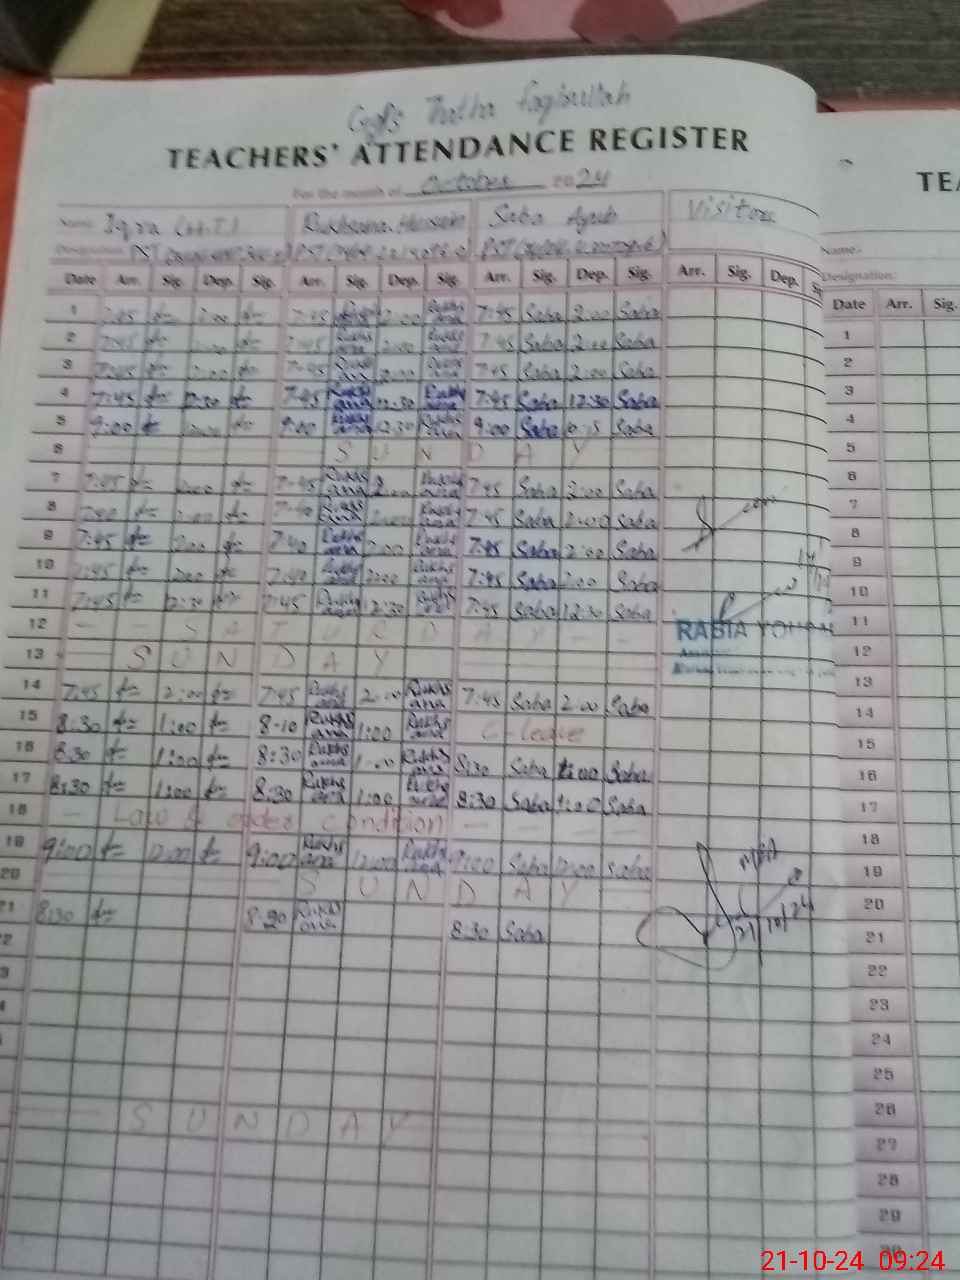 Ggfs Thatha faqirullah
TEACHERS' ATTENDANCE REGISTER
TEA
For the month of October 2024
Name: Iqra (H.T) Rukhsana Hussain Saba Ayub Visitors
Name:
Designation: PST PST PST
Designation:
Date Arr. Sig. Dep. Sig. Arr. Sig. Dep. Sig. Arr. Sig. Dep. Sig. Arr. Sig. Dep.
Date Arr. Sig.
1 7:45 2:00 7:45 2:00 Rukhsana 7:45 Saba 2:00 Saba
2 7:45 2:00 7:45 Rukhsana 2:00 Rukhsana 7:45 Saba 2:00 Saba
3 7:45 2:00 7:45 Rukhsana 2:00 Rukhsana 7:45 Saba 2:00 Saba
4 7:45 12:30 7:45 Rukhsana 12:30 Rukhsana 7:45 Saba 12:30 Saba
5 9:00 9:00 Rukhsana 12:30 Rukhsana 9:00 Saba Saba
6 SUNDAY
7 7:45 2:00 7:45 Rukhsana 2:00 Rukhsana 7:45 Saba 2:00 Saba
8 7:40 2:00 7:40 Rukhsana 2:00 Rukhsana 7:45 Saba 2:00 Saba
9 7:45 2:00 7:40 Rukhsana 2:00 Rukhsana 7:45 Saba 2:00 Saba
10 7:45 2:00 7:40 Rukhsana 2:00 Rukhsana 7:45 Saba 2:00 Saba
11 7:45 12:30 7:45 Rukhsana 12:30 Rukhsana 7:45 Saba 12:30 Saba
RABIA
12 - - SATURDAY - - -
13 SUNDAY
14 7:45 2:00 7:45 Rukhsana 2:00 Rukhsana 7:45 Saba 2:00 Saba
15 8:30 1:00 8-10 Rukhsana 1:00 Rukhsana C-leave
16 8:30 1:00 8:30 Rukhsana 1:00 Rukhsana 8:30 Saba 1:00 Saba
17 8:30 1:00 8:30 Rukhsana 1:00 Rukhsana 8:30 Saba 1:00 Saba
18 - Law & order condition - - - -
19 9:00 12:00 9:00 Rukhsana 12:00 Rukhsana 9:00 Saba 12:00 Saba
20 SUNDAY
21 8:30 8:30 Rukhsana 8:30 Saba
21/10/24
SUNDAY
1
2
3
4
5
6
7
8
9
10
11
12
13
14
15
16
17
18
19
20
21
22
23
24
25
26
27
28
29
30
21-10-24 09:24